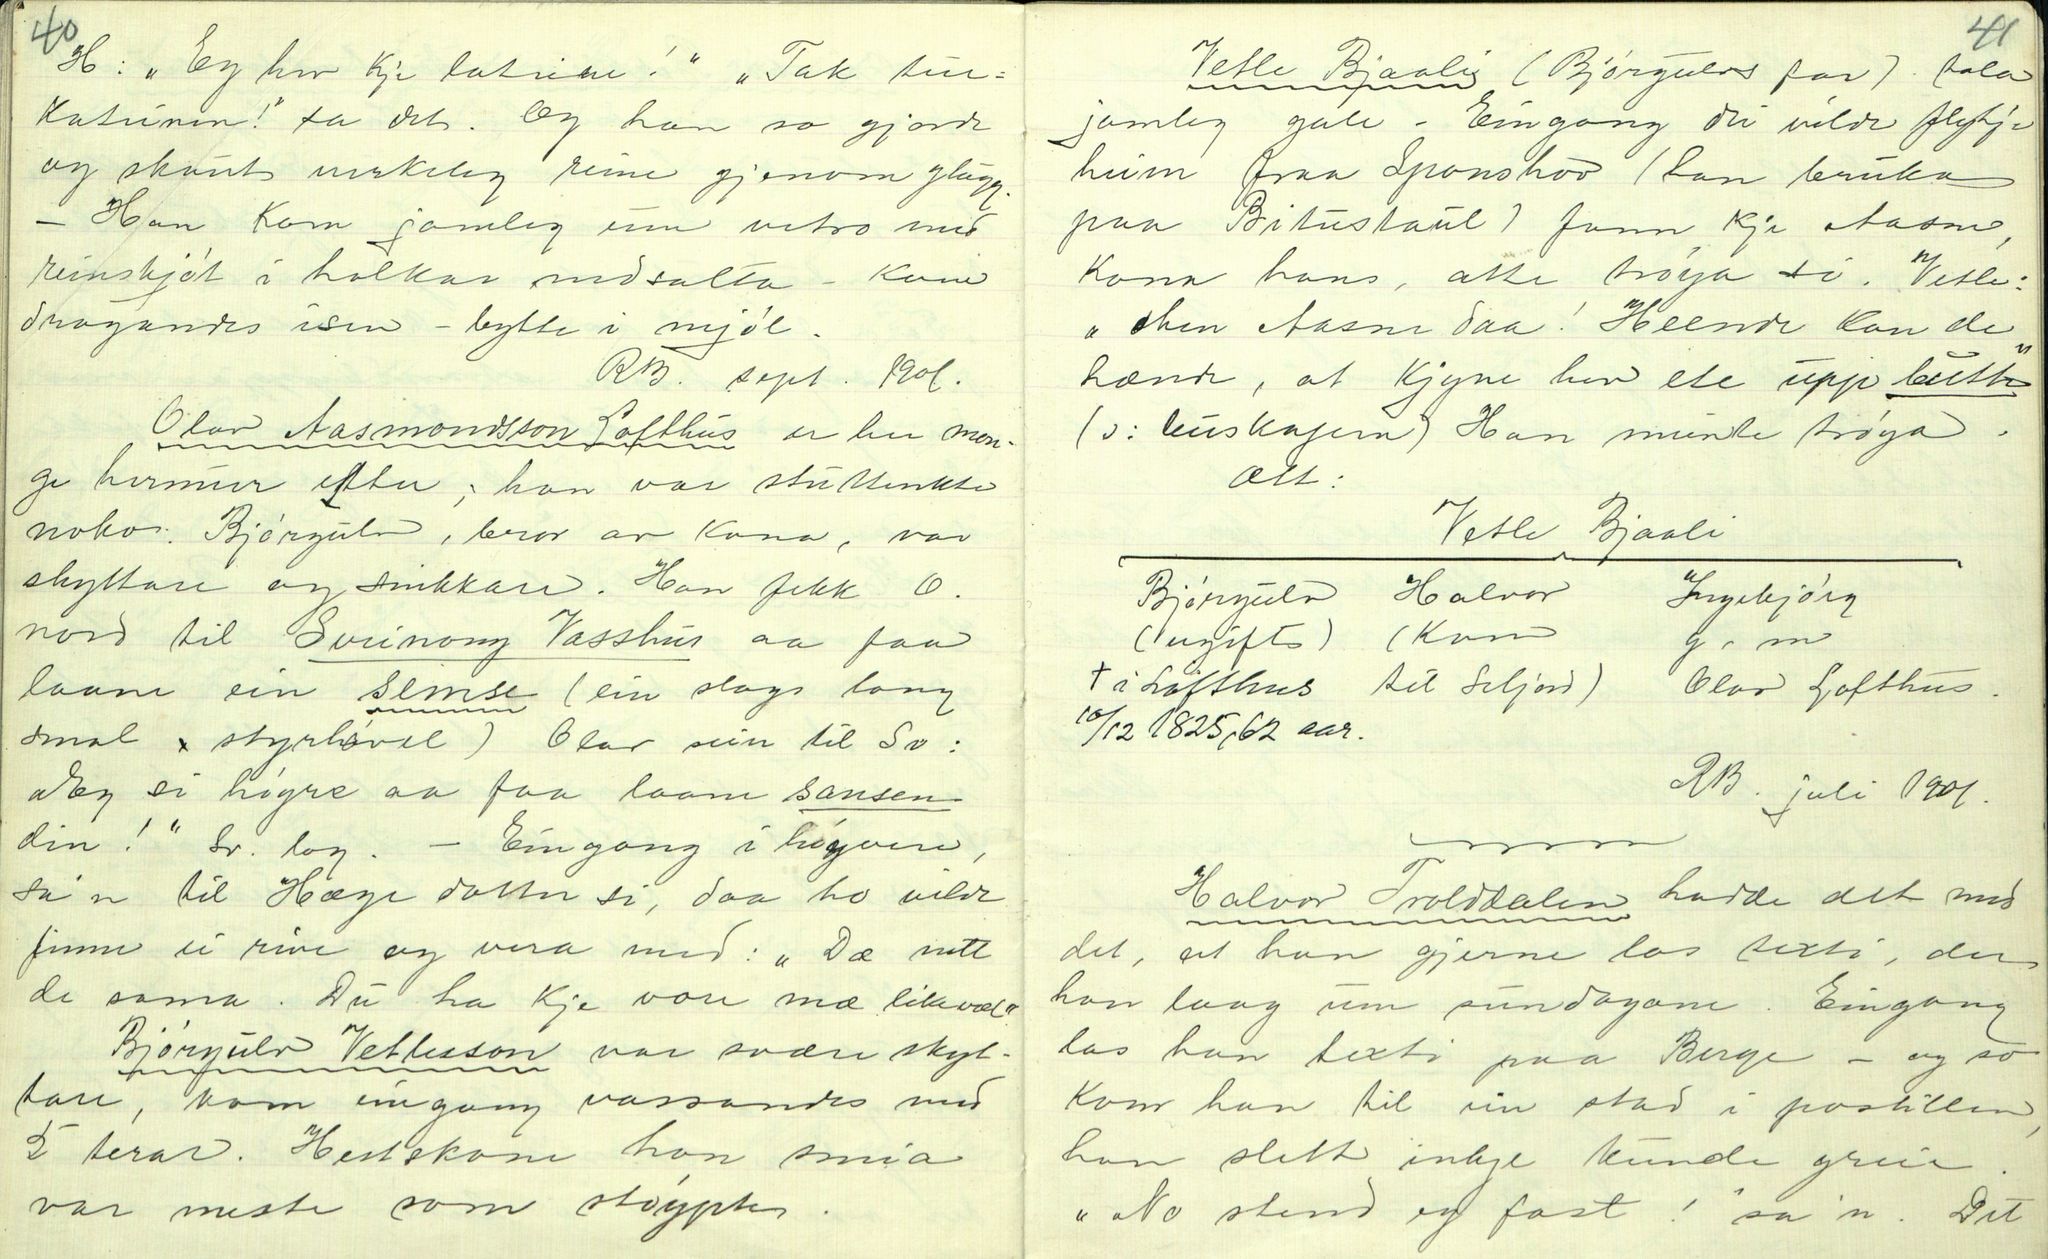 40
H: „Eg hev kje latriene!“ „Tak tur-
katrinen!“ sa det. Og han so gjorde
og skaut verkeleg reine gjenom glugg.
— Han kom jamleg um vetro med
reinskjöt i holkar nedsalta — kom
dragandes isen — bytte i mjöl.
RB. sept. 1901.
Olav Aasmondsson Lofthus er her man-
ge hermur etter; han var stuttenkte
noko. Björgulv, bror av kona, var
skyttare og snikkare. Han fekk O.
nord til Sveinong Vasshus aa faa
laane ein simse (ein slags lang
smal styrhövel) Olav sein til Sv:
„Eg ei högre aa faa laane sansen
din!“ Sv. log. — Eingong i höyvere,
sa'n til Hæge dotter si, daa ho vilde
finne ei rive og vera med: „Dæ nett
de sama. Du ha kje vore mæ likevæl“
Björgulv Vetlesson var svære skyt-
tare, kom eingong vassandes med
5 terar. Hestskone han smia
var meste som stöypte.
41
Vetle Bjaali (Björgulvs far) tala
jamleg gale — Eingong dei vilde flytje
heim fraa Sponshov (han bruka
paa Bitustaul) fann kje Aasne,
kona hans, atte tröya si. Vetle:
„Men Aasne daa! Heende kan de
hænde, at kjyne hev ete upp butte“
(ɔ: buskajern) Han meinte tröya.
Ætt:
Vetle Bjaali
Björgulv Halvor Ingebjörg
(ugift) (kom g. m
† i Lofthus til Seljord) Olav Lofthus.
10/12 1825, 62 aar.
RB. juli 1901.
Halvor Trolddalen hadde det med
det, at han gjerne las texti, der
han laag um sundagane. Eingong
las han texti paa Berge — og so
kom han til ein stad i postillen,
han slett inkje kunde greie.
„No stend eg fast!“ sa'n. Det